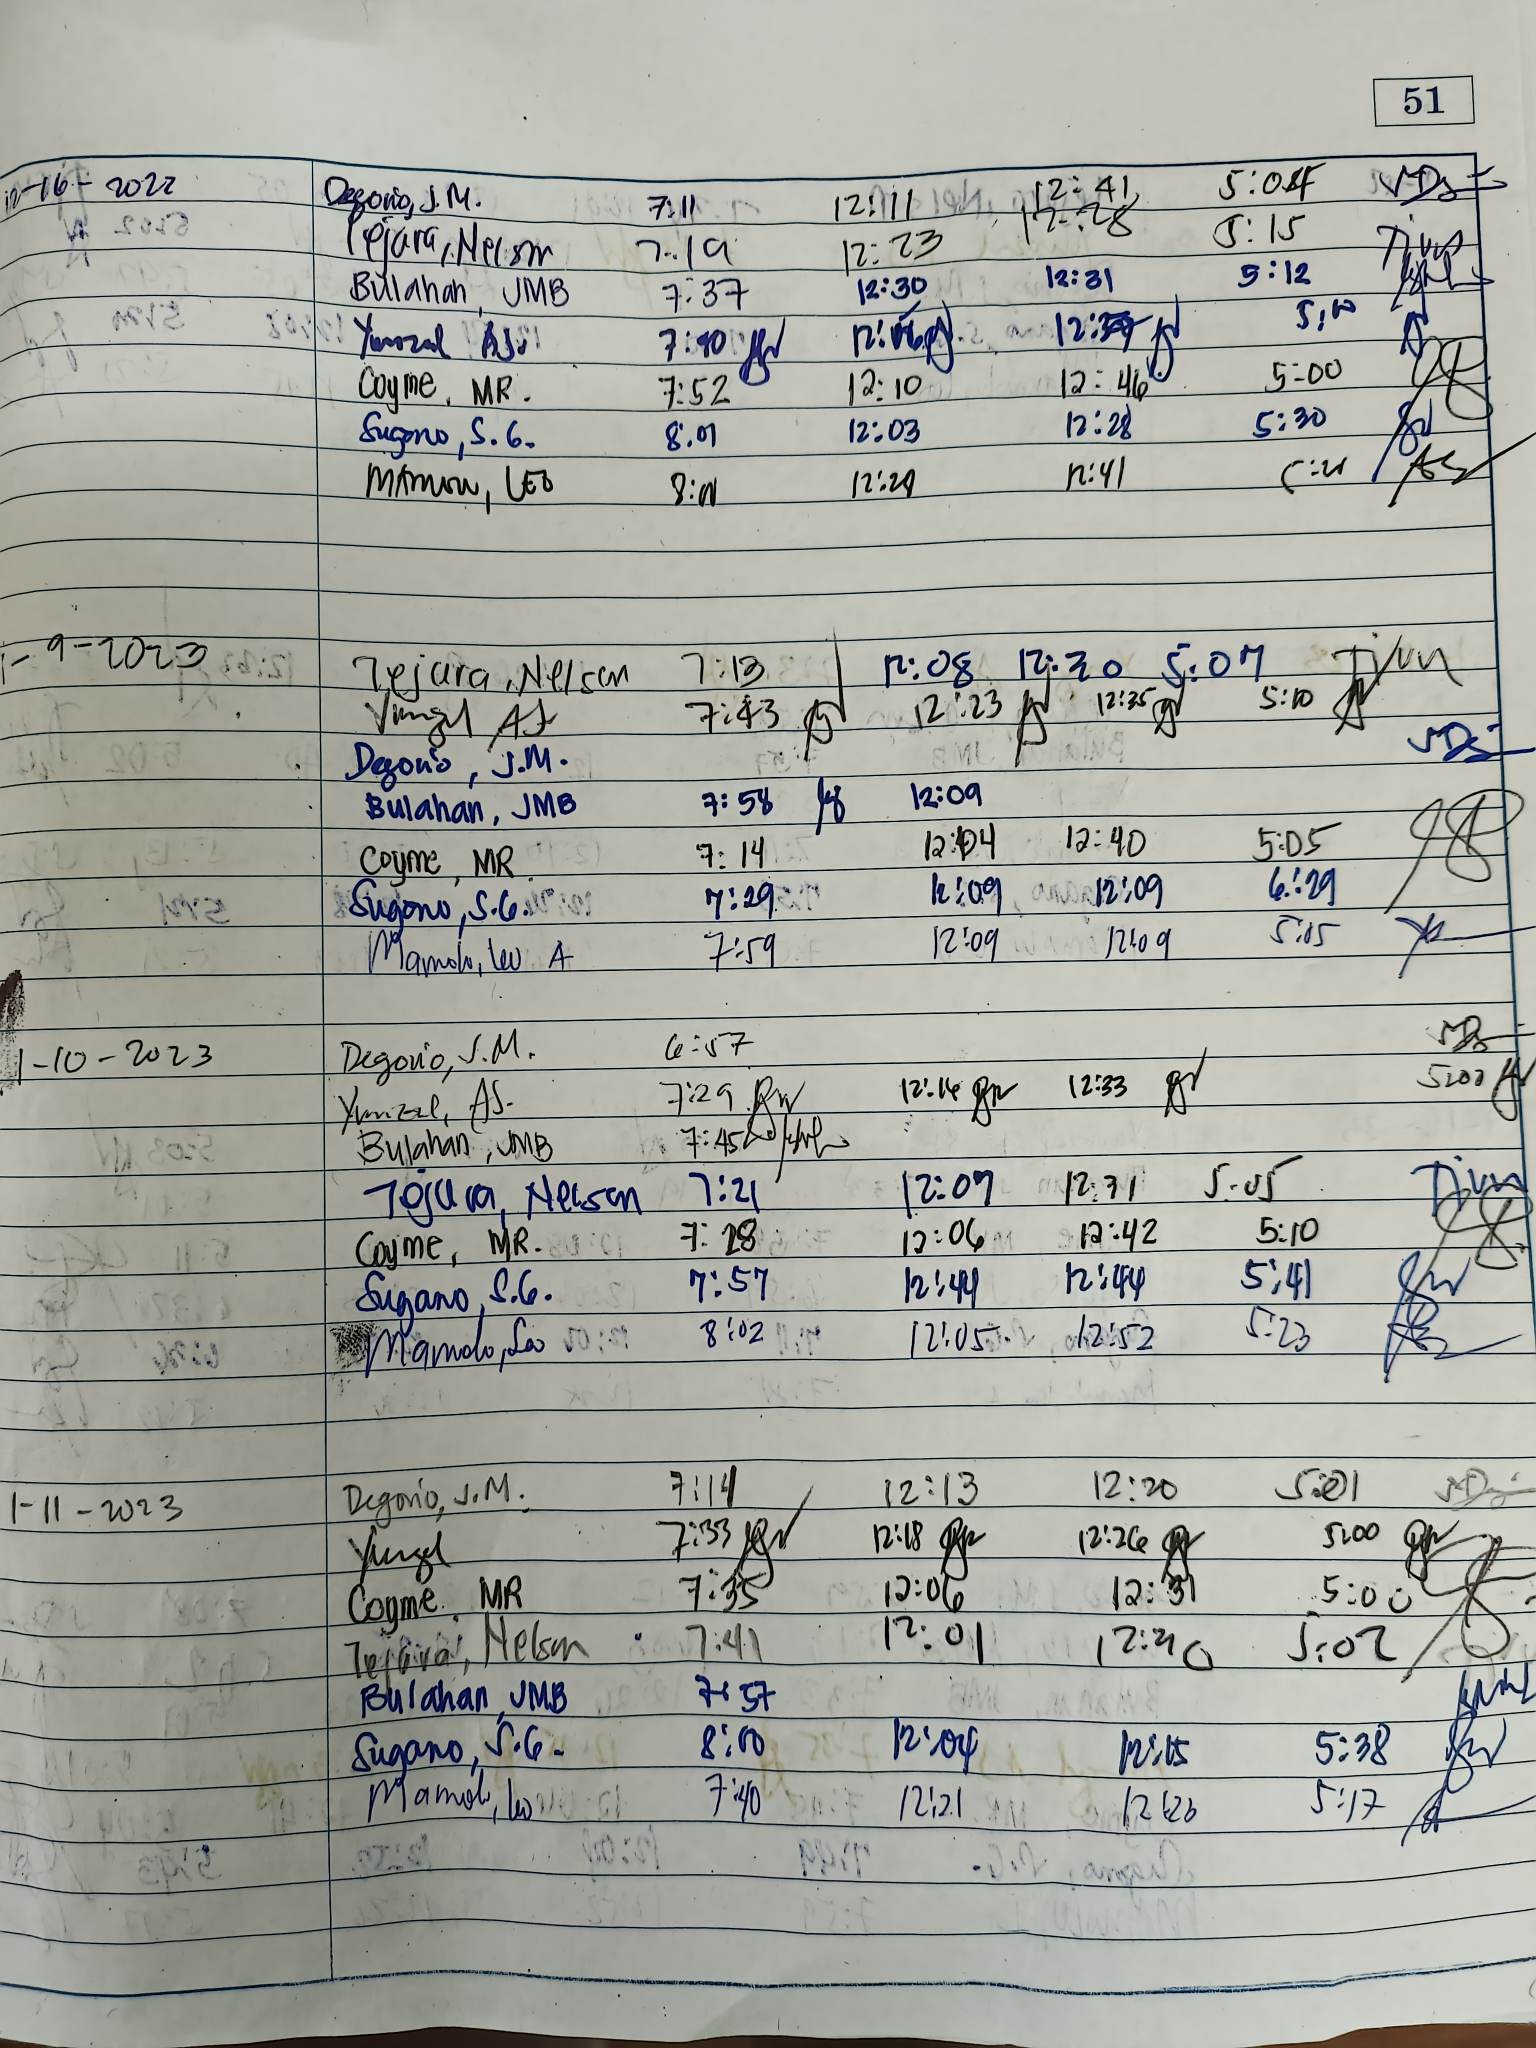 51
12-16-2022 Degorio, J.M. 7:11 12:11 12:41 5:04
Tejara, Nelson 7:19 12:23 12:28 5:15
Bulahan, JMB 7:37 12:30 12:31 5:12
Yunzal AS. 7:40 5:10
Coyme, MR. 7:52 12:10 12:46 5:00
Sugano, S.G. 8:01 12:03 12:28 5:30
8:01 12:29 12:41
1-9-2023 Tejara, Nelson 7:13 12:08 12:30 5:07
7:43 12:23 12:35 5:10
Degorio, J.M.
Bulahan, JMB 7:58 12:09
Coyme, MR 7:14 12:04 12:40 5:05
Sugano, S.G. 7:29 12:09 12:09 6:29
Mamolo, Leo A 7:59 12:09 12:09 5:15
1-10-2023 Degorio, J.M. 6:57
Yunzal, AS. 7:29 12:14 12:33 5:00
Bulahan, JMB 7:45
Tejara, Nelson 7:21 12:07 12:31 5:05
Coyme, MR. 7:28 12:06 12:42 5:10
Sugano, S.G. 7:57 12:44 12:44 5:41
Mamolo, Leo 8:02 12:05 12:52 5:23
1-11-2023 Degorio, J.M. 7:14 12:13 12:20 5:01
Yunzal 7:33 12:18 12:26 5:00
Coyme, MR 7:35 12:06 12:31 5:00
Tejara, Nelson 7:41 12:01 5:02
Bulahan, JMB 7:57
Sugano, S.G. 8:10 12:04 12:15 5:38
Mamolo, Leo 7:40 12:21 12:26 5:17